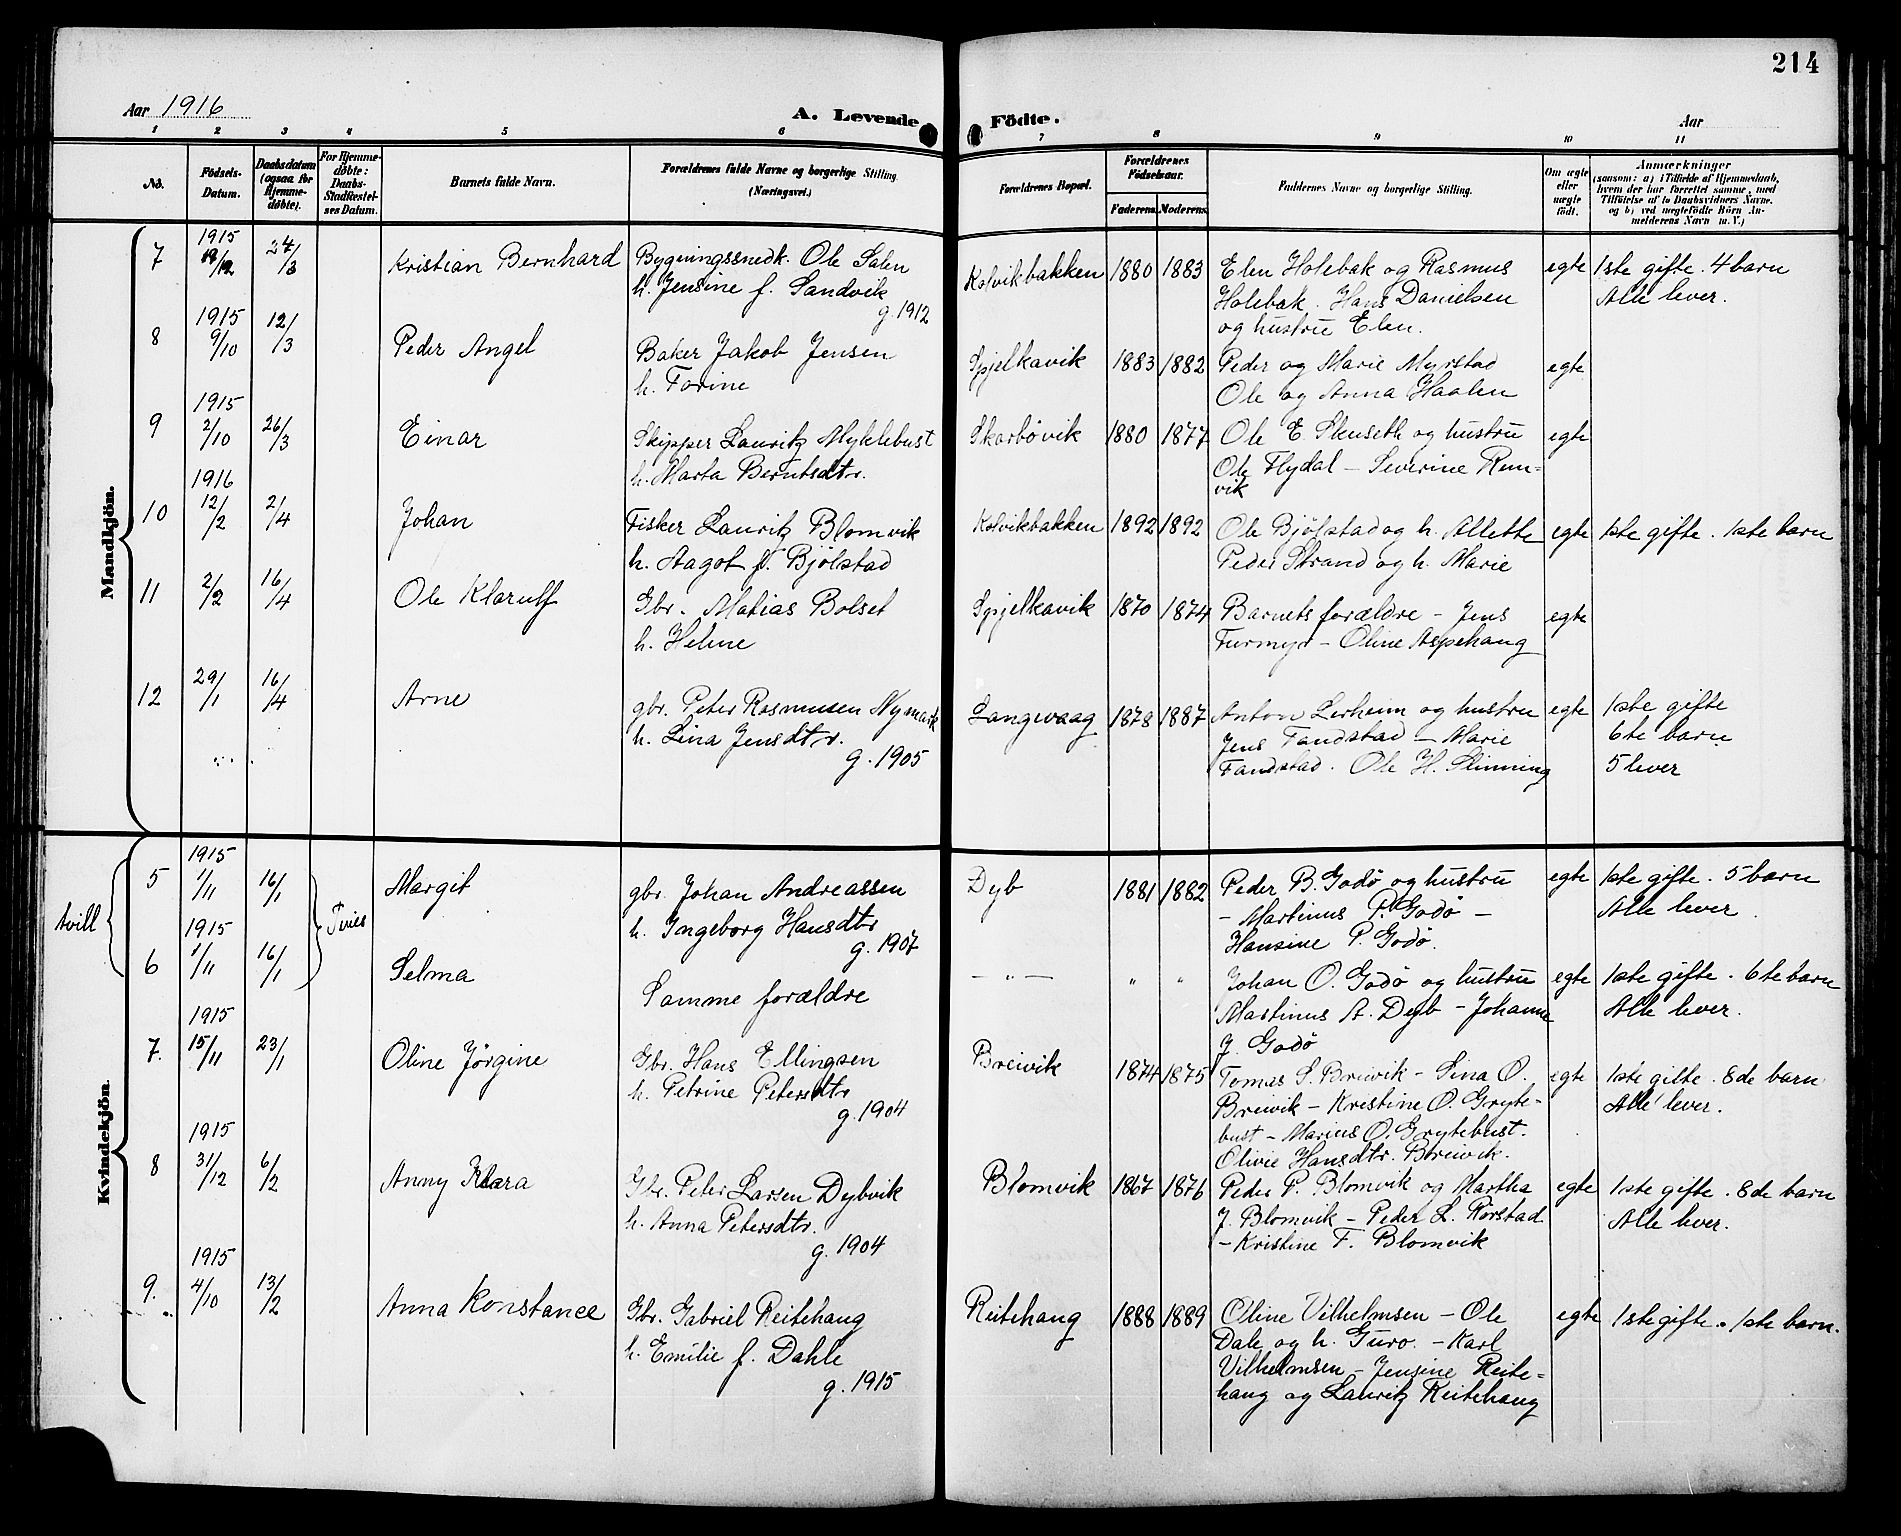 214
Aar 1916
A. Levende Födte.
Aar
1 2 3 4 5 6 7 8 9 10 11
No.
Födsels-Datum.
Daabsdatum (ogsaa for Hjemme-døbte).
For Hjemme-døbte: Daabs-Stadfæstel-ses Datum.
Barnets fulde Navn.
Forældrenes fulde Navne og borgerlige Stilling. (Næringsvei.)
Forældrenes Bopæl.
Forældrenes Födselsaar.
Faderens. Moderens.
Faddernes Navne og borgerlige Stilling.
Om ægte eller uægte födt.
Anmærkninger
(saasom: a) i Tilfælde af Hjemmedaab, hvem der har forrettet samme, med Tilføielse af to Daabsvidners Navne, og b) ved uægtefödte Börn An-melderens Navn m. V.)
Mandkjön.
7 1915 24/3 Kristian Bernhard Bygningssnedk. Ole Salen Kolvikbakken 1880 1883 Elen Holebak og Rasmus egte 1ste gifte. 4 barn
h. Jensine f. Sandvik Holebak. Hans Danielsen Alle lever.
g. 1912 og hustru Elen.
8 1915 9/10 12/3 Peder Angel Baker Jakob Jensen Spjelkavik 1883 1882 Peder og Marie Myrstad egte
h. Torine Ole og Anna Haalen
9 1915 2/10 26/3 Einar Skipper Lauritz Myklebust Skarbövik 1880 1877 Ole E. Skuseth og hustru egte
h. Marta Berntsdtr. Ole Flydal - Severine Rem-
vik
10 1916 12/2 2/4 Johan Fisker Lauritz Blomvik Kolvikbakken 1892 1892 Ole Bjölstad og h. Allette egte 1ste gifte. 1ste barn
h. Aagot f. Bjölstad Peder Strand og h. Marie
11 2/2 16/4 Ole Klarulf Gbr. Matias Bolset Spjelkavik 1870 1874 Barnets forældre - Jens egte
h. Heline Furmyr - Oline Aspehaug
12 29/1 16/4 Arne gbr. Peter Rasmussen Nymark Langevaag 1878 1887 Anton Lerheim og hustru egte 1ste gifte
h. Lina Jensdtr. Jens Fandstad - Marie 6te barn
g. 1905 Fandstad. Ole H. Slinning 5 lever
Kvindekjön.
tvill
5 1915 1/11 16/1 Margit gbr. Johan Andreassen Dyb 1881 1882 Peder B. Godö og hustru egte 1ste gifte. 5 barn
h. Ingeborg Hansdtr - Martinus P. Godö - Alle lever.
g. 1907 Hansine P. Godö.
6 1915 1/11 16/1 Selma Samme forældre - " - " " Johan O. Godö og hustru egte 1ste gifte. 6te barn
Martinus A. Dyb - Johanne Alle lever.
J. Godö
7. 1915 15/11 23/1 Oline Jörgine Gbr. Hans Ellingsen Breivik 1874 1875 Tomas S. Breivik - Lina O. egte 1ste gifte. 8de barn
h. Petrine Petersdtr Breivik - Kristine O. Gryte- Alle lever.
g. 1904 bust - Marius O. Grytebust.
Olivie Hansdtr. Breivik.
8 1915 31/12 6/2 Anny Klara Gbr. Peter Larsen Dybvik Blomvik 1867 1876 Peder P. Blomvik og Martha egte 1ste gifte. 8de barn
h. Anna Petersdtr. J. Blomvik - Peder L. Rörstad Alle lever.
g. 1904 - Kristine F. Blomvik
9. 1915 4/10 13/2 Anna Konstance Gbr. Gabriel Reitehaug Reitehaug 1888 1889 Oline Vilhelmsen - Ole egte 1ste gifte. 1ste barn.
h. Emilie f. Dahle Dale og h. Guro. - Karl
g. 1915 Vilhelmsen - Jensine Reite-
haug og Lauritz Reitehaug